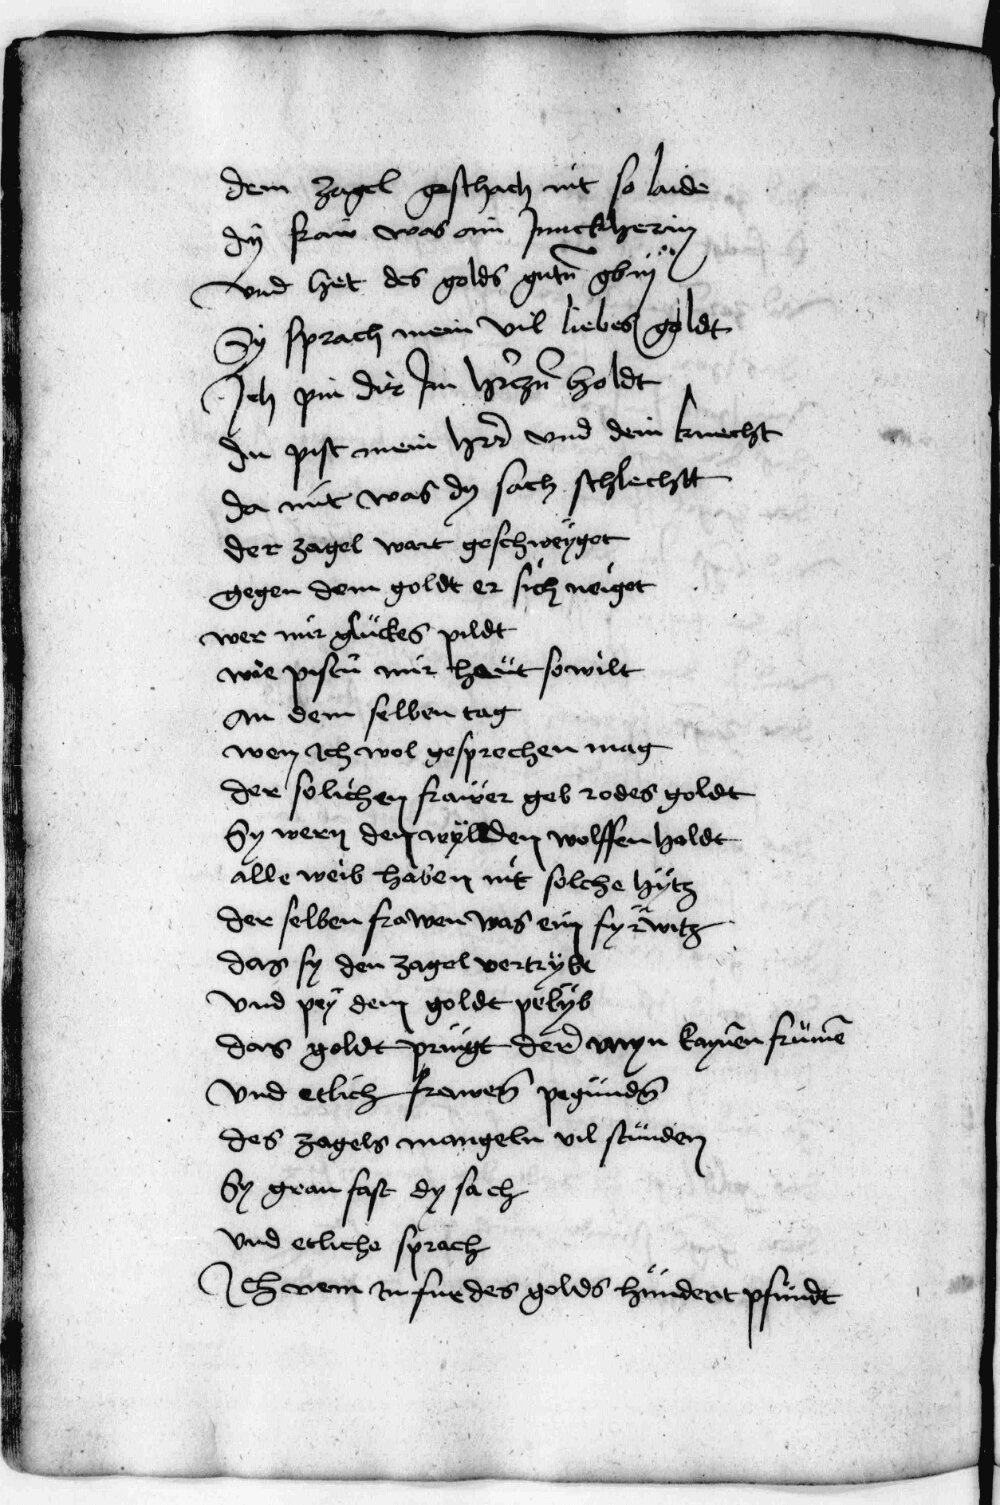 dem zagel geschach nit so laide
dy fraw was ain Junckherin
vnd het des golds gutñ
Sy sprach mein vil liebes goldt
Ich pin dir Im hrczñ holdt
du pist mein hrr vnd dein knecht
da mit was dy sach schlechtt
der zagel wart geschweyget
gegen dem goldt er sich neiget
wer mir glückes pildt
wie pistu mir heüt so wilt
an dem selben tag
wen Ich wol gesprechen mag
der solichen frawer geb rodes goldt
Sy wern den wyllden wolffen holdt
alle weib haben nit solche hytz
der selben frawen was ein fyrwitz
das sy den zagel vertrybt
vnd pey dem goldt pelyb
das goldt pringt kaynen frumē
vnd etlich frawen pegundñ
des zagels mangeln vil stunden
Sy grau fast dy sach
vnd etliche sprach
Ich nem in fur des golds hundert pfundt